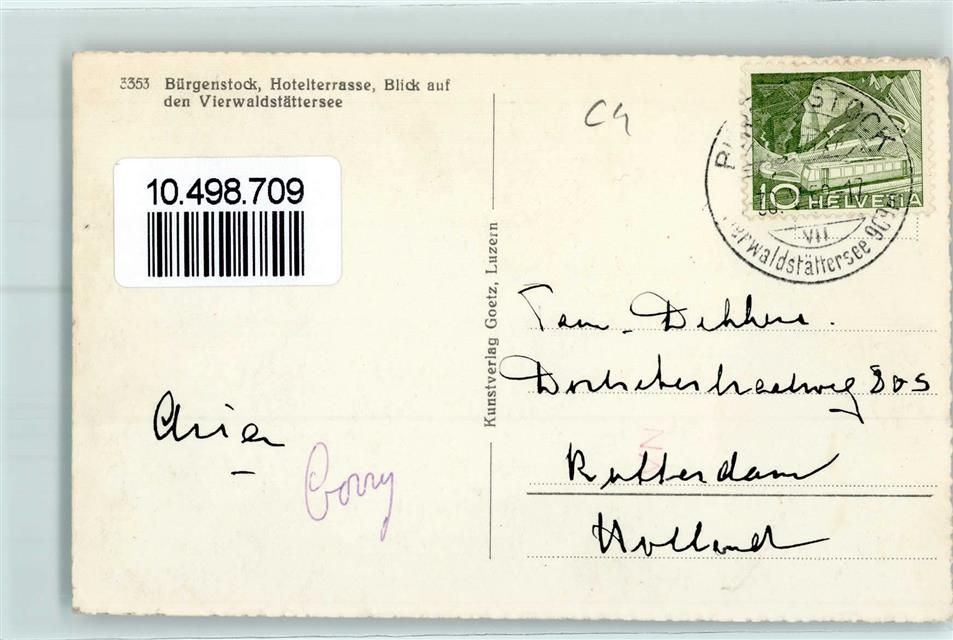 3353 Bürgenstock, Hotelterrasse, Blick auf
den Vierwaldstättersee
10.498.709
C4
STOCK
10 HELVETIA
VII
Vierwaldstättersee 906m
Kunstverlag Goetz, Luzern
Fam. Dekkers.
805
Rotterdam
Holland
Arie
Corry